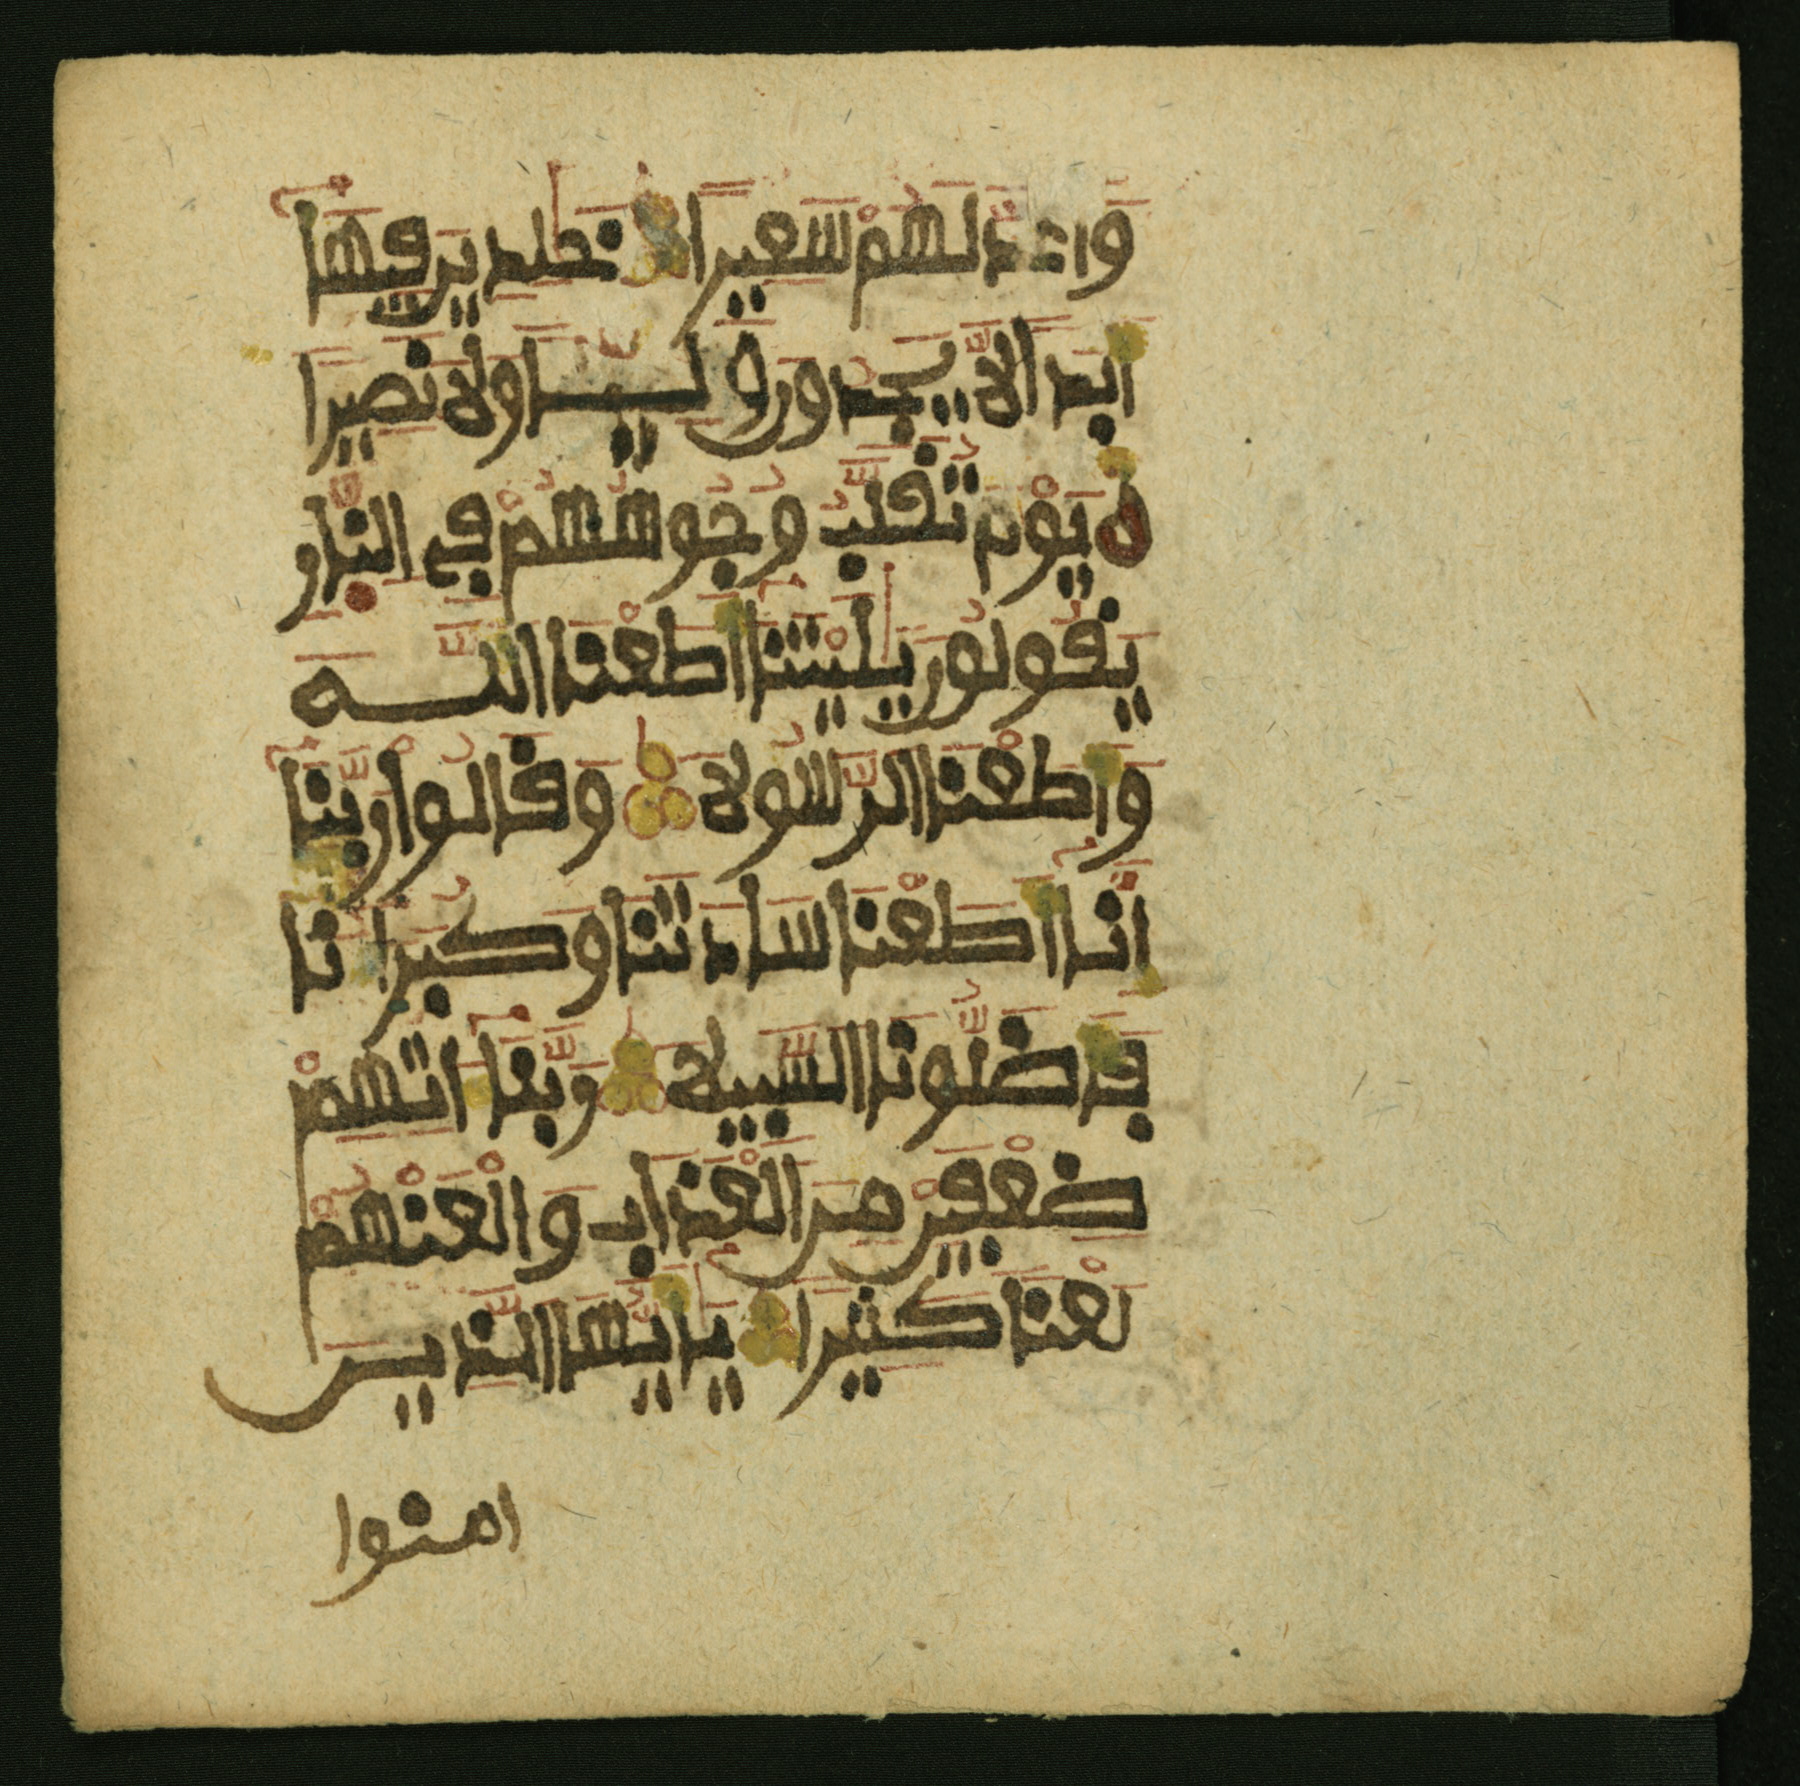 وَأَعَدَّ لَهُمْ سَعِيرًا خَٰلِدِينَ فِيهَا
أَبَدًا لَّا يَجِدُونَ وَلِيًّا وَلَا نَصِيرًا
ه يَوْمَ تُقَلَّبُ وُجُوهُهُمْ فِي النَّارِ وَ
يَقُولُونَ يَٰلَيْتَنَا أَطَعْنَا اللَّهَ
وَأَطَعْنَا الرَّسُولَا وَقَالُوا رَبَّنَا
إِنَّا أَطَعْنَا سَادَتَنَا وَكُبَرَاءَنَا
فَأَضَلُّونَا السَّبِيلَا رَبَّنَا ءَاتِهِمْ
ضِعْفَيْنِ مِنَ الْعَذَابِ وَالْعَنْهُمْ
لَعْنًا كَثِيرًا يَٰأَيُّهَا الَّذِينَ
امنوا